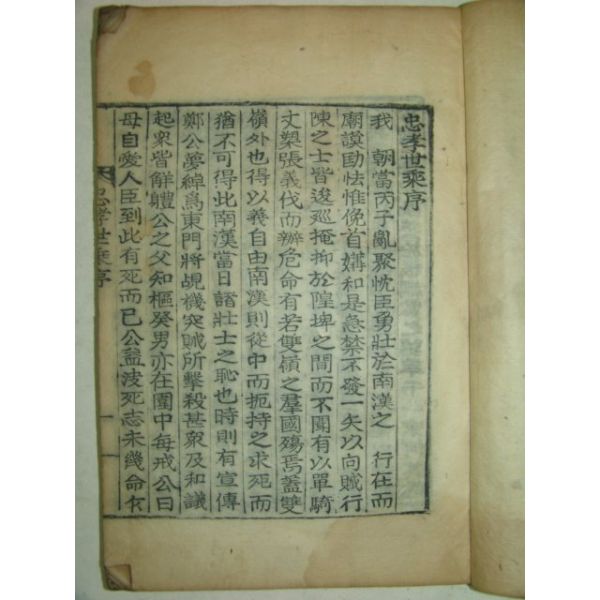 忠孝世乘序
我　朝當丙子亂聚忱臣勇壯於南漢之　行在而
廟謨劻怯惟俛首媾和是急禁不發一矢以向賊行
陳之士皆逡巡掩抑於隍埤之間而不聞有以單騎
丈槊張義伐而辦危命有若雙嶺之羣國殤焉蓋雙
嶺外也得以義自由南漢則從中而扼持之求死而
猶不可得此南漢當日諸壯士之恥也時則有宣傳
鄭公夢綽爲東門將覘機突賊所擊殺甚衆及和議
起衆皆解體公之父知樞癸男亦在圍中每戒公曰
母自愛人臣到此有死而已公益决死志未幾命
忠孝世乘序
一